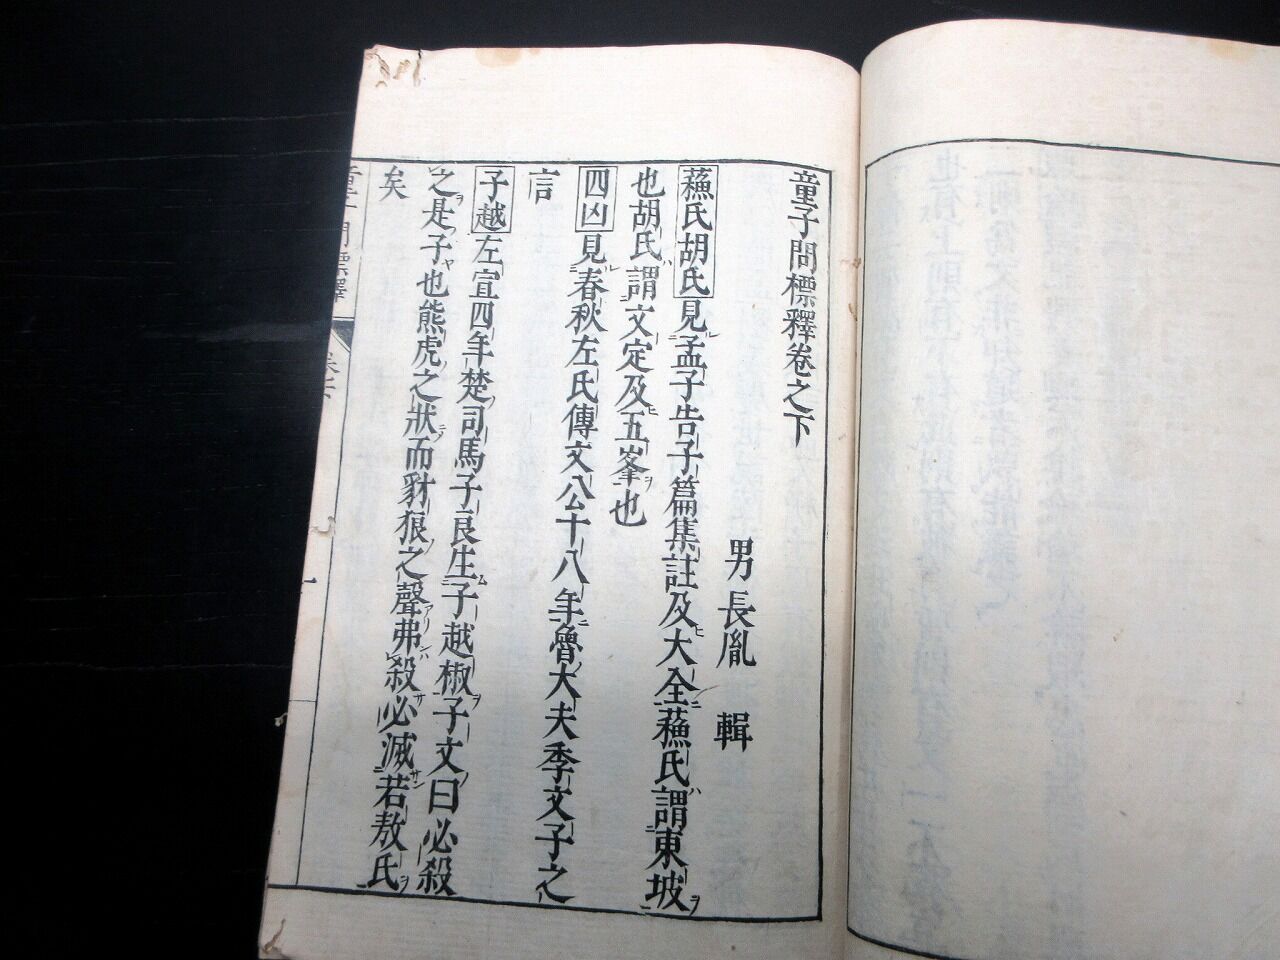 童子問標釋卷之下
男長胤　輯
蘓氏胡氏見孟子告子篇集註及大全蘓氏謂東坡
也胡氏謂文定及五峯也
四凶見春秋左氏傳文公十八年魯大夫季文子之
言
子越左宣四年楚司馬子良生子越椒子文曰必殺
之是子也熊虎之狀而豺狼之聲弗殺必滅若敖氏
矣